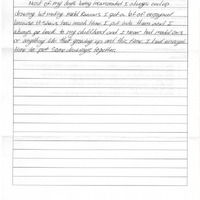 Most of my days being incarcerated I always end up
drawing but making model
because it shows how much time I put into them and I
always go back to my childhood and I never had model cars
or anything like that growing up and this time I had enough
time to put some drawings together.